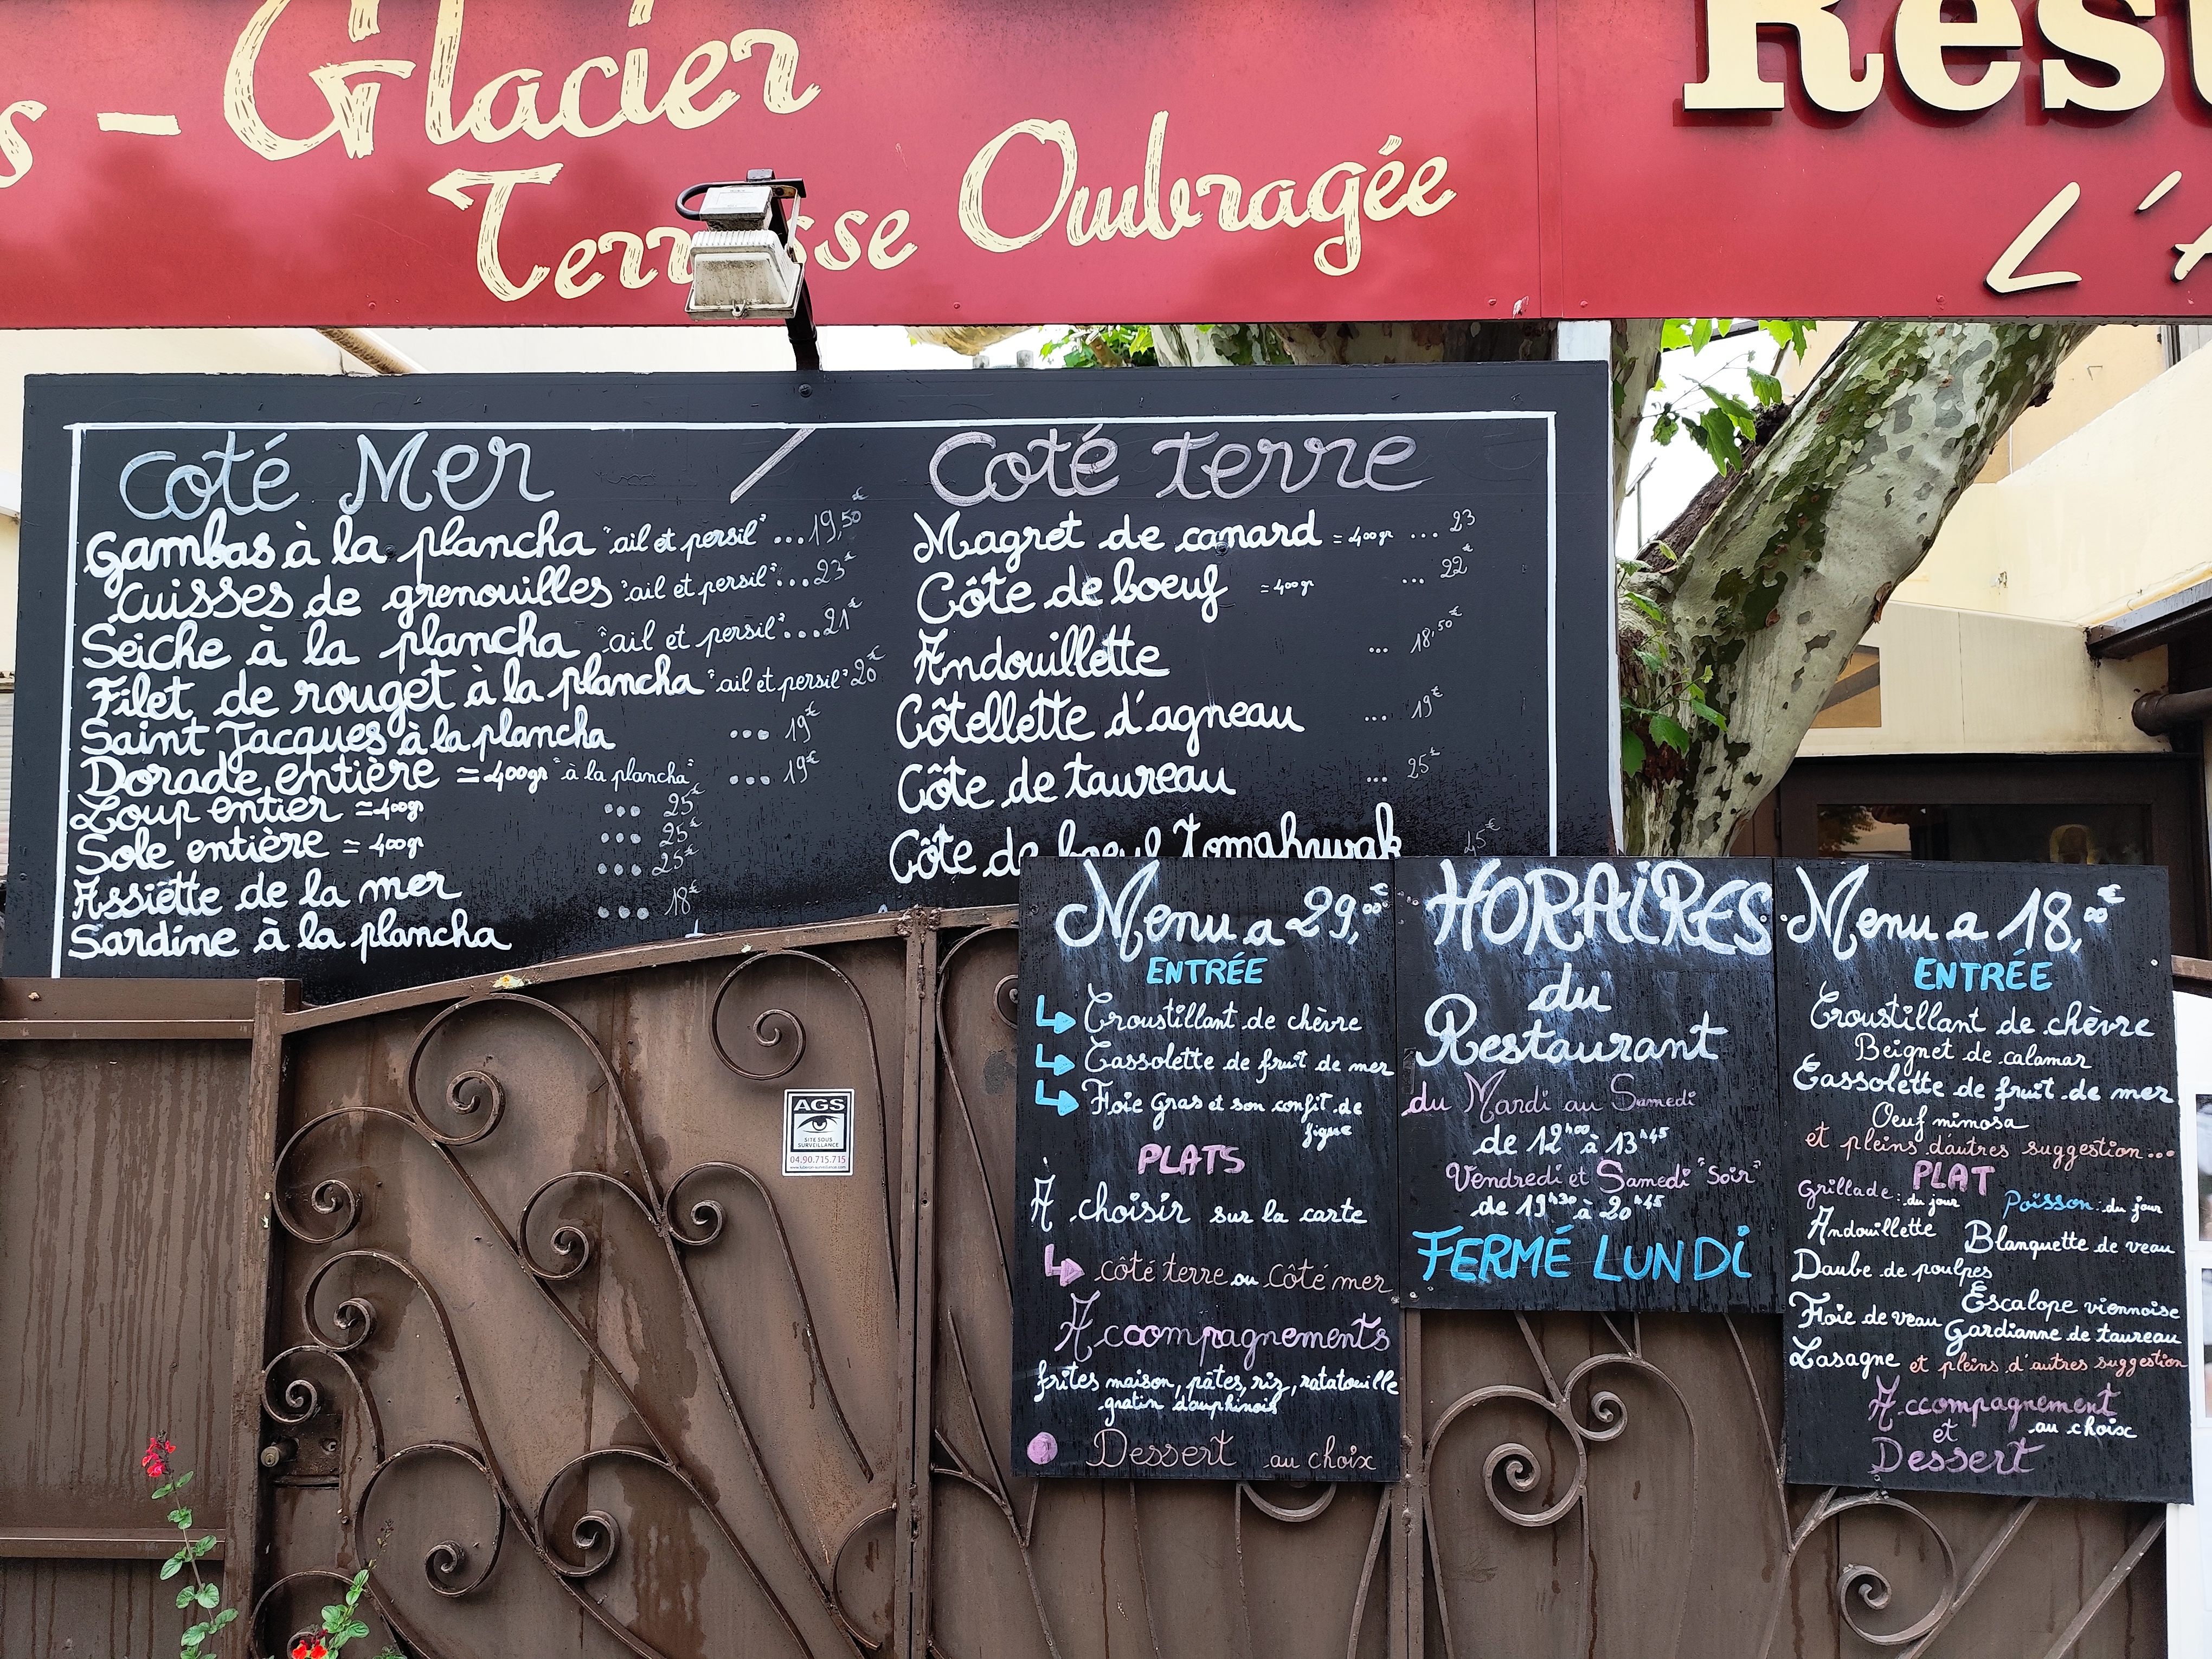 s - Glacier
Terrasse Ombragée
Rest
L'A
Coté Mer /
Gambas à la plancha "ail et persil" ... 19,50€
Cuisses de grenouilles "ail et persil" ... 23€
Seiche à la plancha "ail et persil" ... 21€
Filet de rouget à la plancha "ail et persil" 20€
Saint Jacques à la plancha ... 19€
Dorade entière ≃ 400gr "à la plancha" ... 19€
Loup entier ≃ 400gr ... 25€
Sole entière ≃ 400gr ... 25€
Assiette de la mer ... 25€
Sardine à la plancha ... 18€
Coté terre
Magret de canard ≃ 400gr ... 23
Côte de boeuf ≃ 400gr ... 22€
Andouillette ... 18,50€
Côtellette d'agneau ... 19€
Côte de taureau ... 25€
Côte de boeuf Tomahwak 45€
Menu a 29,00€
ENTRÉE
Croustillant de chèvre
Cassolette de fruit de mer
Foie gras et son confit de
figue
PLATS
A choisir sur la carte
côté terre ou côté mer
Accompagnements
frites maison, pâtes, riz, ratatouille
gratin dauphinois
Dessert au choix
HORAIRES
du
Restaurant
du Mardi au Samedi
de 12h00 à 13h45
Vendredi et Samedi "Soir"
de 19h30 à 20h45
FERMÉ LUNDI
Menu a 18,00€
ENTRÉE
Croustillant de chèvre
Beignet de calamar
Cassolette de fruit de mer
Oeuf mimosa
et pleins d'autres suggestion...
PLAT
Grillade : du jour Poisson : du jour
Andouillette Blanquette de veau
Daube de poulpes
Escalope viennoise
Foie de veau Gardianne de taureau
Lasagne et pleins d'autres suggestion
Accompagnement
et au choix
Dessert
AGS
SITE SOUS
SURVEILLANCE
04.90.715.715